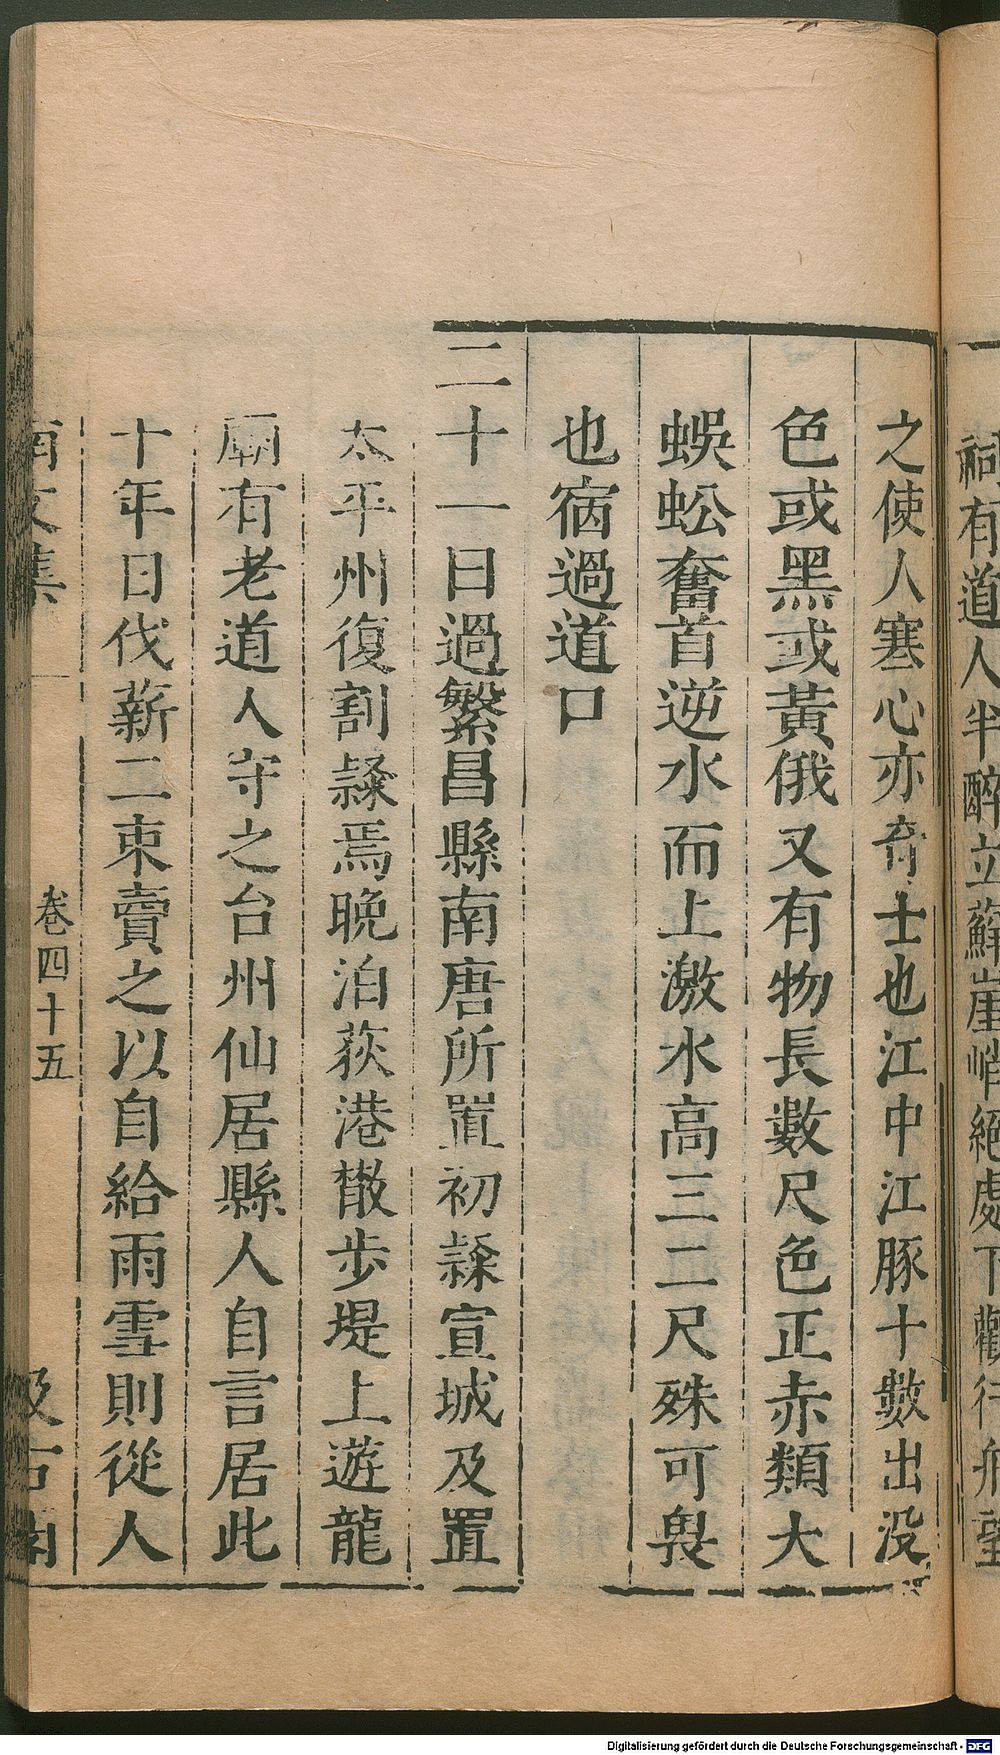 祠有道人半醉立蘚崖峭絕處下觀行舟望
之使人寒心亦奇士也江中江豚十數出没
色或黑或黃俄又有物長數尺色正赤類大
蜈蚣奮首逆水而上激水高三二尺殊可畏
也宿過道口
二十一日過繁昌縣南唐所置初隸宣城及置
太平州復割隸焉晚泊荻港散步堤上遊龍
廟有老道人守之台州仙居縣人自言居此
十年日伐薪二束賣之以自給雨雪則從人
卷四十五
Digitalisierung gefördert durch die Deutsche Forschungsgemeinschaft - DFG